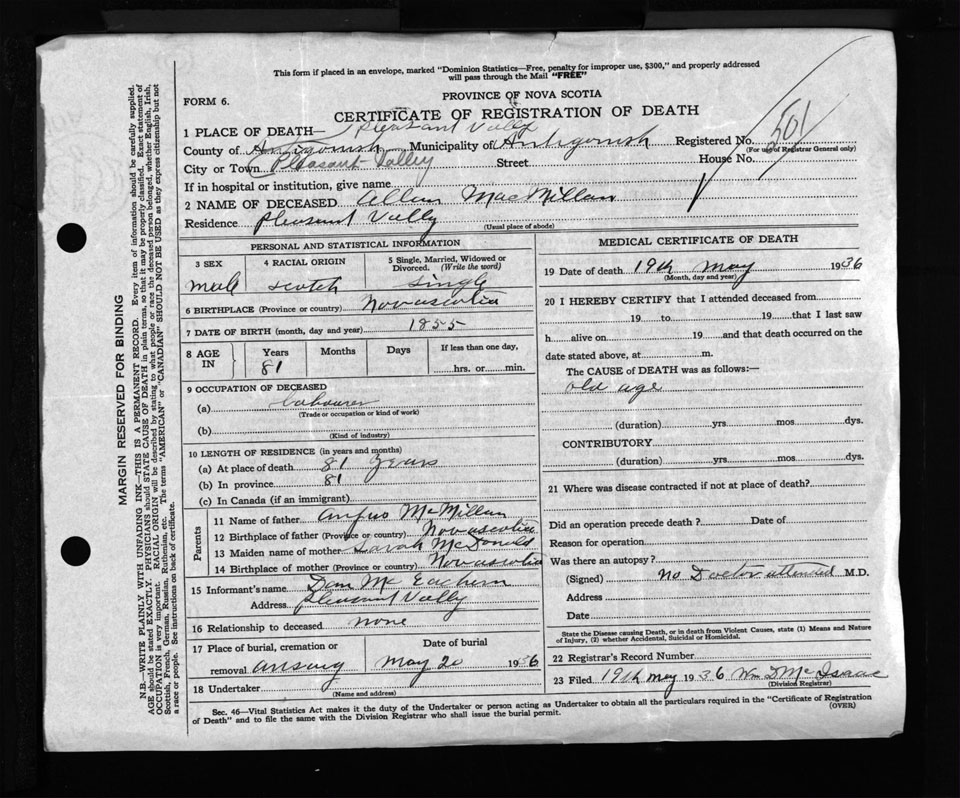 This form if placed in an envelope, marked "Dominion Statistics—Free, penalty for improper use, $300," and properly addressed
will pass through the Mail "FREE"
FORM 6.
PROVINCE OF NOVA SCOTIA
CERTIFICATE OF REGISTRATION OF DEATH
1 PLACE OF DEATH— Pleasant Vally
County of Antigonish Municipality of Antigonish Registered No. 501
(For use of Registrar General only)
City or Town Pleasant Valley Street House No.
If in hospital or institution, give name
2 NAME OF DECEASED Allan MacMillan
Residence Pleasant Vally
(Usual place of abode)
PERSONAL AND STATISTICAL INFORMATION
3 SEX 4 RACIAL ORIGIN 5 Single, Married, Widowed or Divorced. (Write the word)
male scotch single
6 BIRTHPLACE (Province or country) Nova scotia
7 DATE OF BIRTH (month, day and year) 1855
8 AGE IN Years Months Days If less than one day,
81 hrs. or min.
9 OCCUPATION OF DECEASED
(a) Labourer
(Trade or occupation or kind of work)
(b)
(Kind of industry)
10 LENGTH OF RESIDENCE (in years and months)
(a) At place of death 81 years
(b) In province 81
(c) In Canada (if an immigrant)
Parents
11 Name of father Angus McMillan
12 Birthplace of father (Province or country) Nova scotia
13 Maiden name of mother Sarah McDonald
14 Birthplace of mother (Province or country) Nova scotia
15 Informant's name Dan McEachern
Address Pleasant Vally
16 Relationship to deceased none
17 Place of burial, cremation or removal Date of burial
May 20 1936
18 Undertaker
(Name and address)
MEDICAL CERTIFICATE OF DEATH
19 Date of death 19th May 1936
(Month, day and year)
20 I HEREBY CERTIFY that I attended deceased from
19 to 19 that I last saw
h alive on 19 and that death occurred on the
date stated above, at m.
The CAUSE of DEATH was as follows:—
old age
(duration) yrs mos dys.
CONTRIBUTORY
(duration) yrs mos dys.
21 Where was disease contracted if not at place of death?
Did an operation precede death? Date of
Reason for operation
Was there an autopsy?
(Signed) No Doctor attended M.D.
Address
Date
State the Disease causing Death, or in death from Violent Causes, state (1) Means and Nature
of Injury, (2) whether Accidental, Suicidal or Homicidal.
22 Registrar's Record Number
23 Filed 19th May 1936 Wm D McIsaac
(Division Registrar)
Sec. 46—Vital Statistics Act makes it the duty of the Undertaker or person acting as Undertaker to obtain all the particulars required in the "Certificate of Registration
of Death" and to file the same with the Division Registrar who shall issue the burial permit.
(OVER)
MARGIN RESERVED FOR BINDING
N.B.—WRITE PLAINLY WITH UNFADING INK—THIS IS A PERMANENT RECORD. Every item of information should be carefully supplied.
AGE should be stated EXACTLY. PHYSICIANS should STATE CAUSE OF DEATH in plain terms, so that it may be properly classified. Exact statement of
OCCUPATION is very important. RACIAL ORIGIN will be described by stating to what people or race the deceased person belonged, whether English, Irish,
Scottish, French, German, Russian, Ruthenian, etc. The terms "AMERICAN" or "CANADIAN" SHOULD NOT BE USED as they express citizenship but not
a race or people. See instructions on back of certificate.